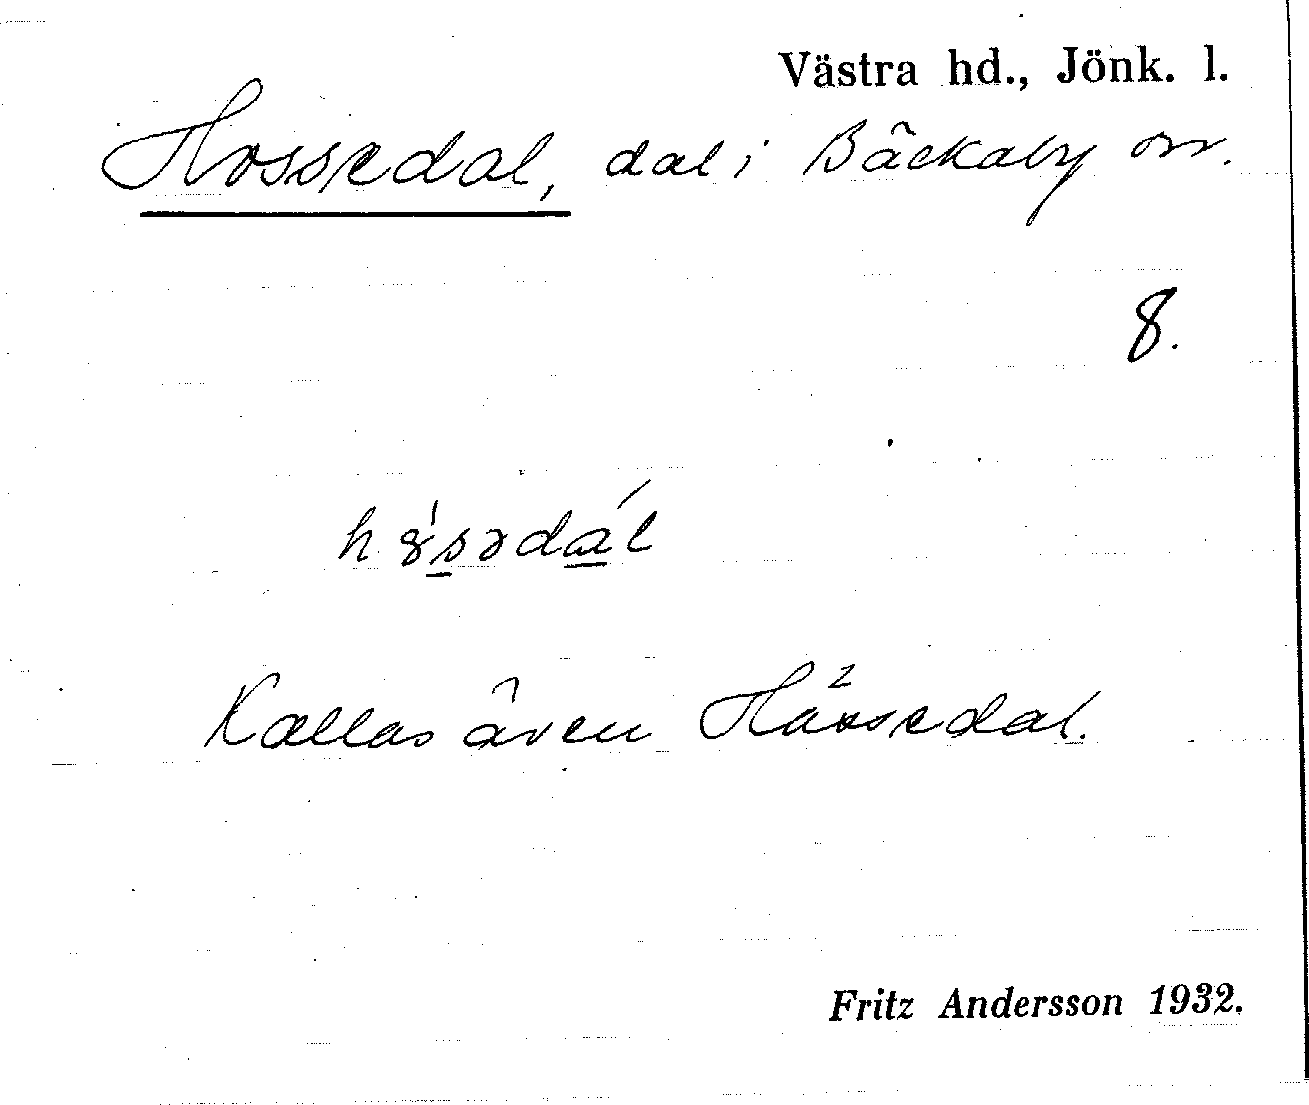 Västra hd., Jönk. l.
Hossedal, dal i Bäckaby sn.
8.
Kallas även Hässedal.
Fritz Andersson 1932.